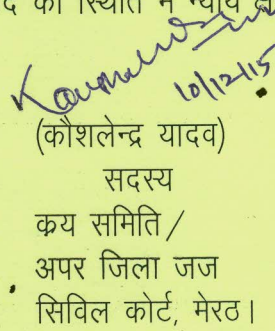 की स्थिति में न्याय
10/12/15
(कौशलेन्द्र यादव)
सदस्य
क्रय समिति /
अपर जिला जज
सिविल कोर्ट, मेरठ।